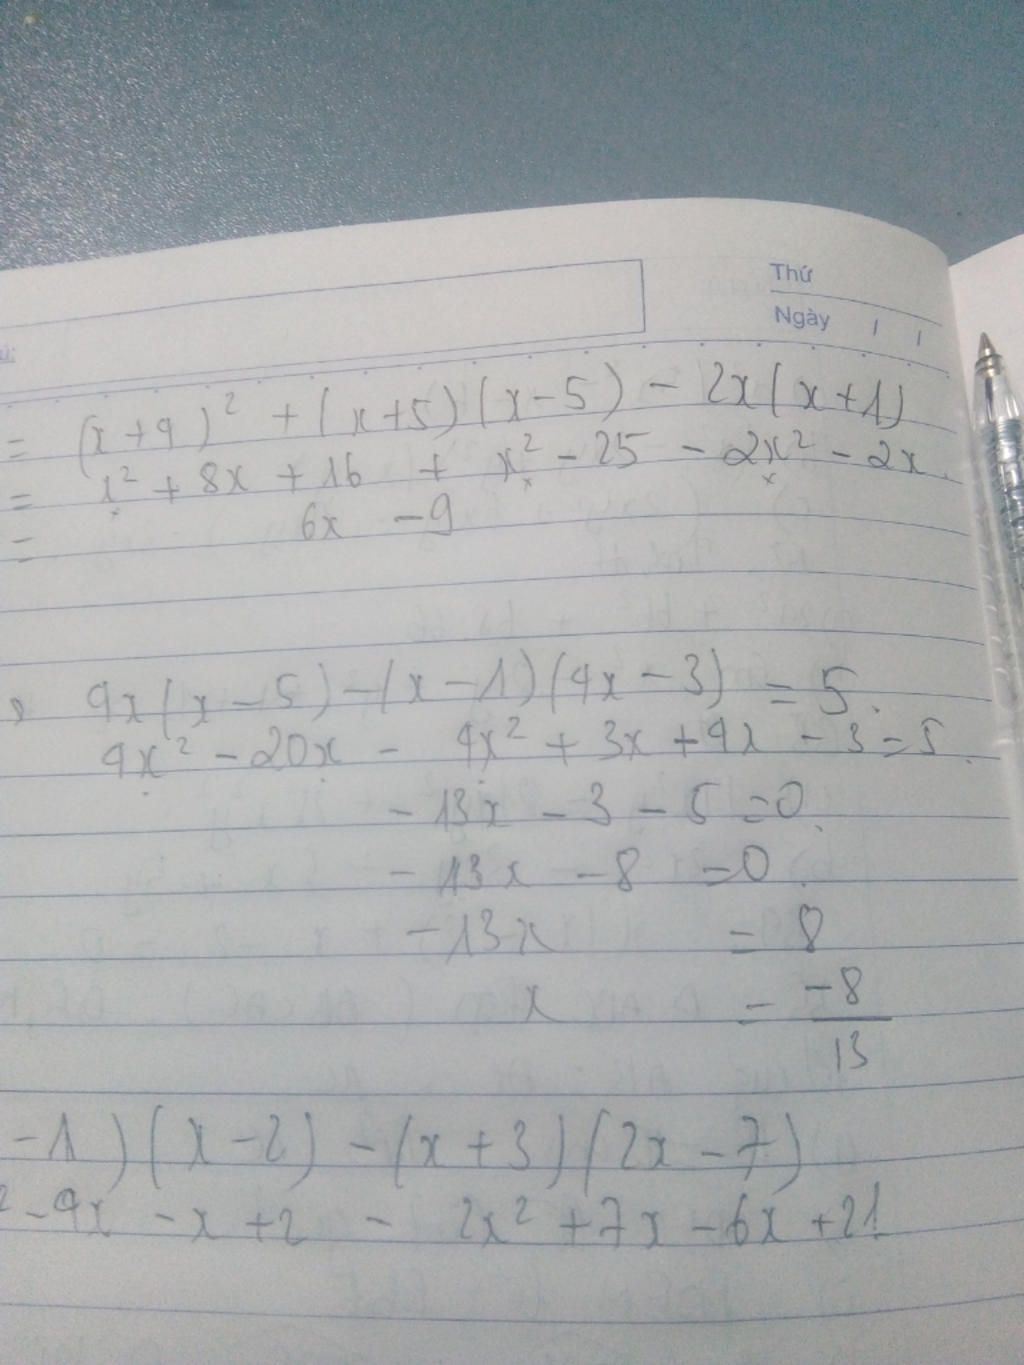 Thứ
Ngày / /
= (x+4)² + (x+5)(x-5) - 2x(x+1)
= x² + 8x + 16 + x² - 25 - 2x² - 2x
= 6x - 9
4x(x-5) - (x-1)(4x-3) = 5.
4x² - 20x - 4x² + 3x + 4x - 3 = 5.
-13x - 3 - 5 = 0.
-13x - 8 = 0.
-13x = 8
x = -8/13
-1)(x-2) - (x+3)(2x-7)
² - 4x - x + 2 - 2x² + 7x - 6x + 21